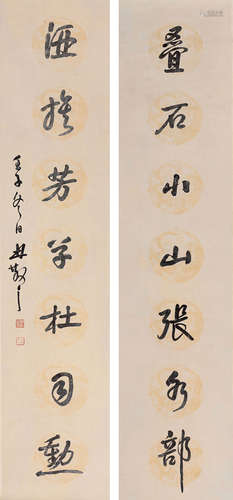 叠石小山張水部
酒旗芳草杜司勳
壬子冬日林散之